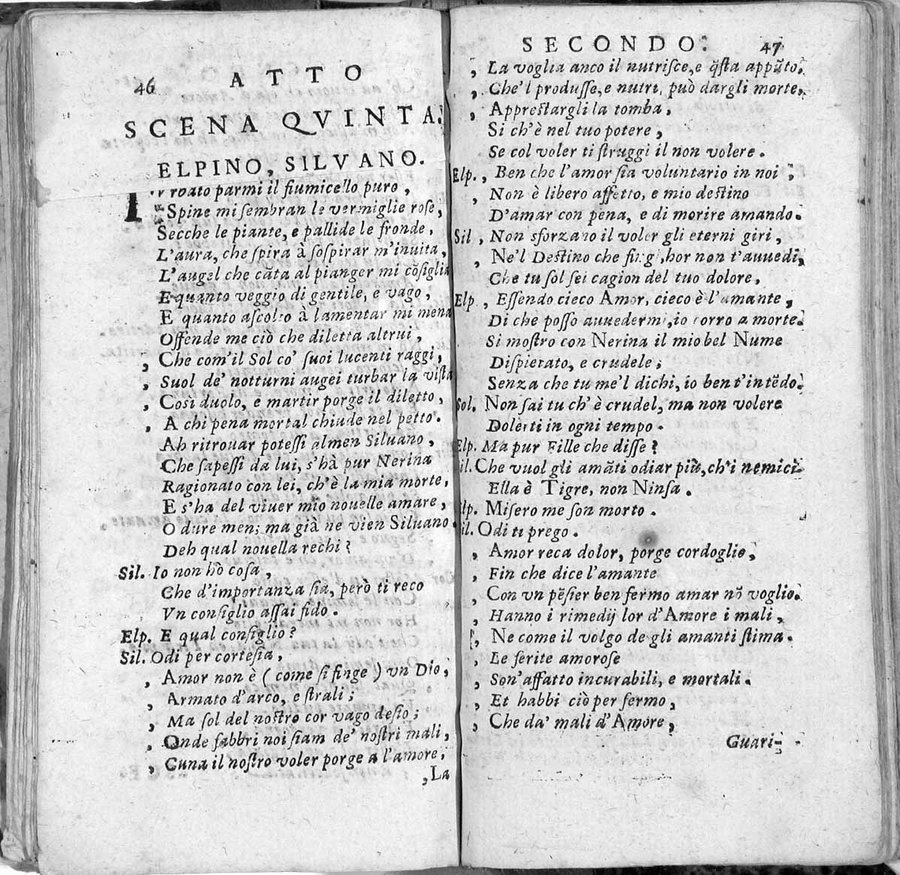 46 ATTO
SCENA QVINTA.
ELPINO, SILVANO.
Torbato parmi il fiumicello puro,
Spine mi sembran le vermiglie rose,
Secche le piante, e pallide le fronde,
L'aura, che spira à sospirar m'inuita,
L'augel che cãta al pianger mi cõsiglia
E quanto veggio di gentile, e vago,
E quanto ascolto à lamentar mi mena
Offende me ciò che diletta altrui,
, Che com'il Sol co' suoi lucenti raggi,
, Suol de' notturni augei turbar la vista
, Così duolo, e martir porge il diletto,
, A chi pena mortal chiude nel petto.
Ah ritrouar potessi almen Siluano,
Che sapessi da lui, s'hà pur Nerina
Ragionato con lei, ch'è la mia morte,
E s'ha del viuer mio nouelle amare,
O dure men; ma già ne vien Siluano.
Deh qual nouella rechi?
Sil. Io non hò cosa,
Che d'importanza sia, però ti reco
Vn consiglio assai fido.
Elp. E qual consiglio?
Sil. Odi per cortesia,
, Amor non è (come si finge) vn Dio,
, Armato d'arco, e strali;
, Ma sol del nostro cor vago desio;
, Onde fabbri noi siam de' nostri mali,
, Cuna il nostro voler porge a l'amore,
,La
SECONDO. 47
, La voglia anco il nutrisce, e q̃sta appũto.
, Che'l produsse, e nutri, può dargli morte,
, Apprestargli la tomba,
Si ch'è nel tuo potere,
Se col voler ti struggi il non volere.
Elp. , Ben che l'amor sia voluntario in noi,
, Non è libero affetto, e mio destino
D'amar con pena, e di morire amando.
Sil , Non sforzano il voler gli eterni giri,
, Ne'l Destino che fingi, hor non t'auuedi,
Che tu sol sei cagion del tuo dolore,
Elp. , Essendo cieco Amor, cieco è l'amante,
Di che posso auuedermi, io corro a morte.
Si mostro con Nerina il mio bel Nume
Dispietato, e crudele;
Senza che tu me'l dichi, io ben t'intẽdo.
Sol. Non sai tu ch'è crudel, ma non volere
Dolerti in ogni tempo.
Elp. Ma pur Fille che disse?
Sil. Che vuol gli amãti odiar più, ch'i nemici.
Ella è Tigre, non Ninfa.
Elp. Misero me son morto.
Sil. Odi ti prego.
, Amor reca dolor, porge cordoglio,
, Fin che dice l'amante
, Con vn pẽsier ben fermo amar nõ voglio.
, Hanno i rimedij lor d'Amore i mali,
, Ne come il volgo de gli amanti stima.
, Le ferite amorose
, Son'affatto incurabili, e mortali.
, Et habbi ciò per fermo,
, Che da' mali d'Amore,
Guari-